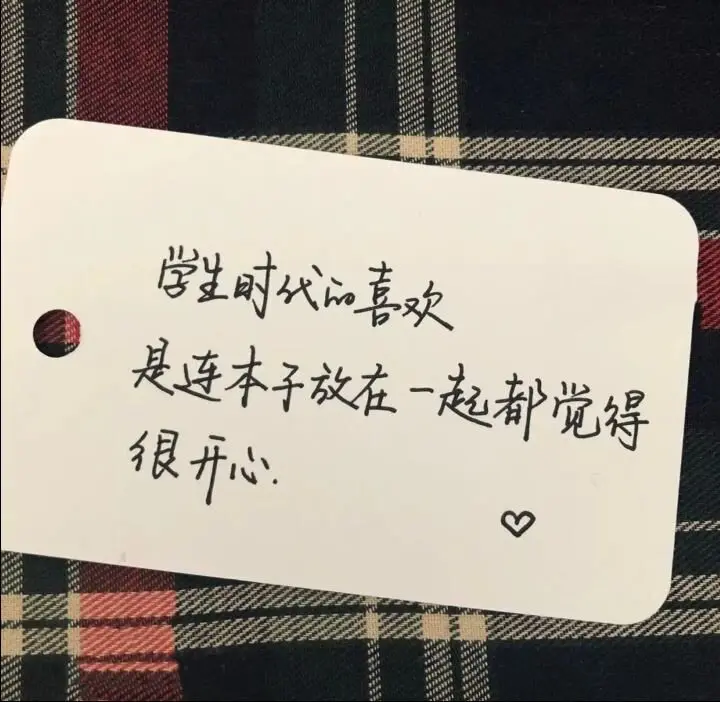 学生时代的喜欢
是连本子放在一起都觉得
很开心.